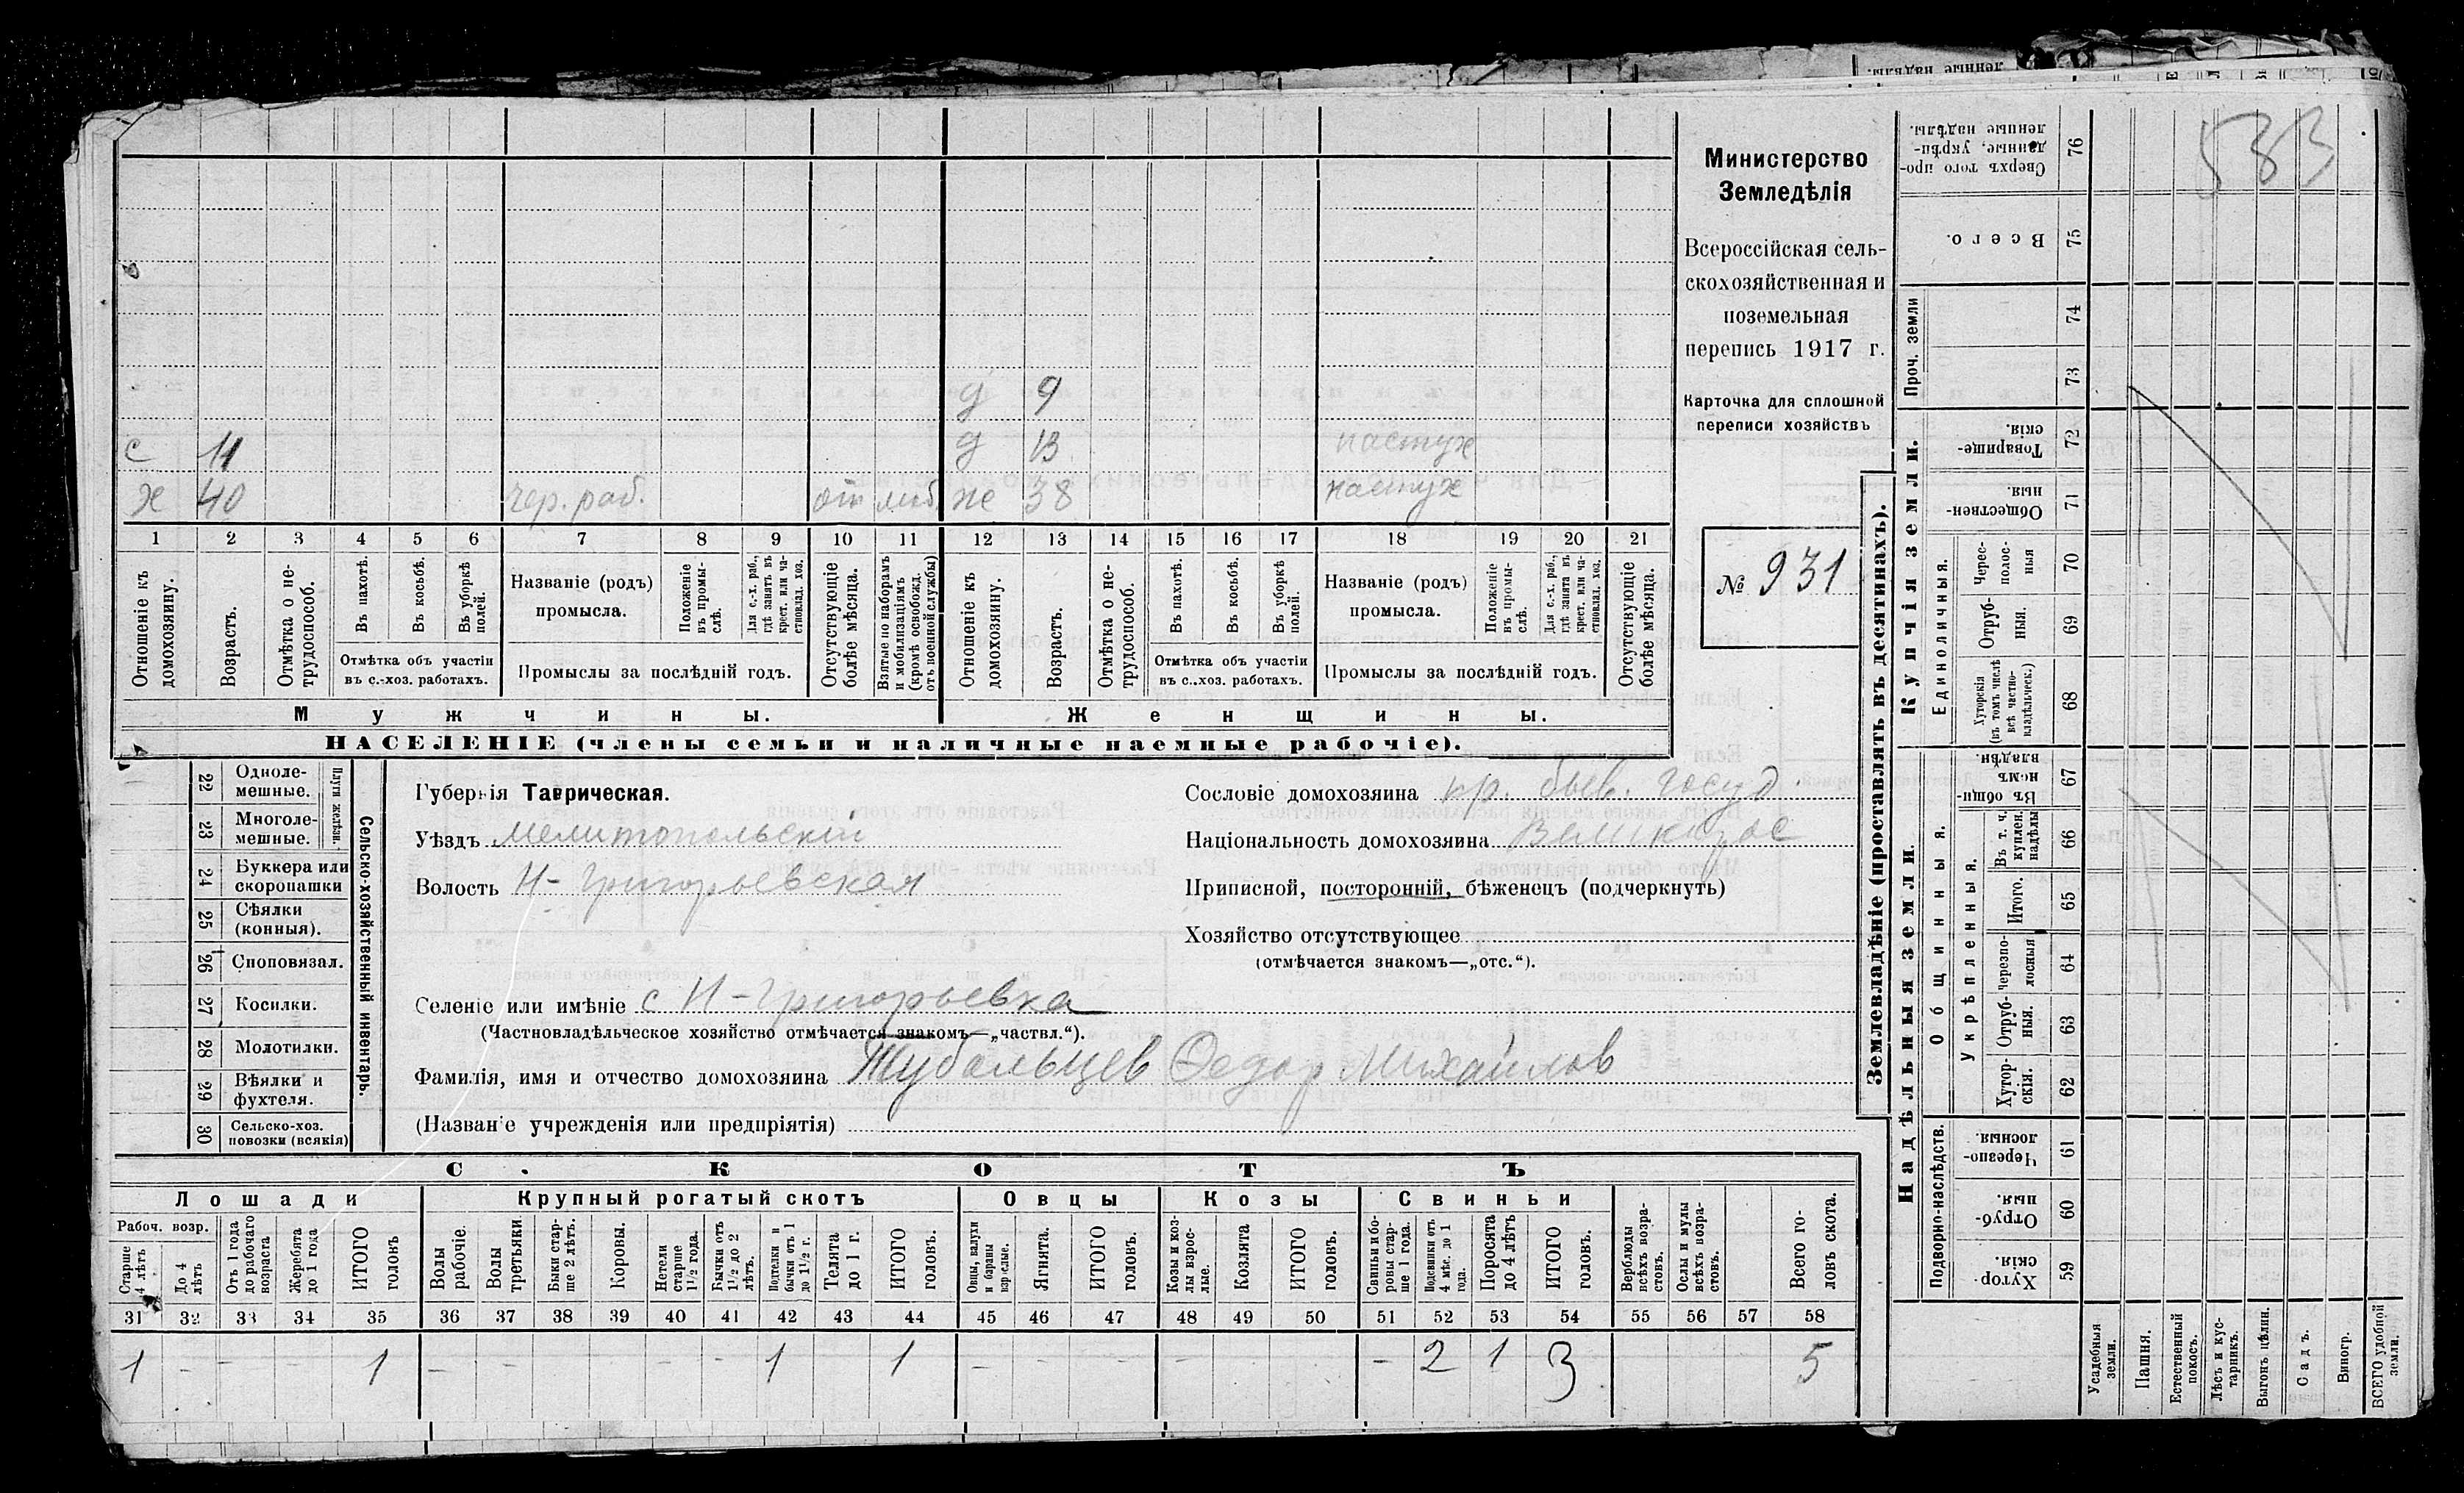 583
Министерство
Земледѣлія
Всероссійская сель-
скохозяйственная и
поземельная
перепись 1917 г.
Карточка для сплошной
переписи хозяйствъ
№ 931
д 9
с 11 д 13 пастух
х 40 чер. раб. от моб. же 38 пастух
1 2 3 4 5 6 7 8 9 10 11 12 13 14 15 16 17 18 19 20 21
Отношеніе къ домохозяину.
Возрастъ.
Отмѣтка о не-трудоспособ.
Въ пахотѣ.
Въ косьбѣ.
Въ уборкѣ полей.
Отмѣтка объ участіи
въ с.-хоз. работахъ.
Названіе (родъ)
промысла.
Положеніе въ промы-слѣ.
Для с.-х. раб., гдѣ занятъ въ крест. или ча-стновлад. хоз.
Промыслы за послѣдній годъ.
Отсутствующіе болѣе мѣсяца.
Взятые по наборамъ и мобилизаціямъ (кромѣ освобожд. отъ военной службы)
Отношеніе къ домохозяину.
Возрастъ.
Отмѣтка о не-трудоспособ.
Въ пахотѣ.
Въ косьбѣ.
Въ уборкѣ полей.
Отмѣтка объ участіи
въ с.-хоз. работахъ.
Названіе (родъ)
промысла.
Положеніе въ промы-слѣ.
Для с.-х. раб., гдѣ занята въ крест. или ча-стновлад. хоз.
Промыслы за послѣдній годъ.
Отсутствующіе болѣе мѣсяца.
Мужчины. Женщины.
НАСЕЛЕНІЕ (члены семьи и наличные наемные рабочіе).
Сельско-хозяйственный инвентарь.
Плуги желѣзн.
22 Одноле-мешные.
23 Многоле-мешные.
24 Буккера или скоропашки
25 Сѣялки (конныя).
26 Споповязал.
27 Косилки.
28 Молотилки.
29 Вѣялки и фухтеля.
30 Сельско-хоз. повозки (всякія)
Губернія Таврическая.
Уѣздъ Мелитопольскій
Волость Н-Григорьевская
Селеніе или имѣніе с Н-Григорьевка
(Частновладѣльческое хозяйство отмѣчается знакомъ—„частвл.“).
Фамилія, имя и отчество домохозяина Тубальцев Федор Михайлов
(Названіе учрежденія или предпріятія)
Сословіе домохозяина кр. быв. госуд.
Національность домохозяина Великорос
Приписной, посторонній, бѣженецъ (подчеркнуть)
Хозяйство отсутствующее
(отмѣчается знакомъ—„отс.“).
СКОТЪ
Лошади Крупный рогатый скотъ Овцы Козы Свиньи
Рабоч. возр.
Старше 4 лѣтъ
До 4 лѣтъ
Отъ 1 года до рабочаго возраста
Жеребята до 1 года
ИТОГО головъ
Волы рабочіе.
Волы третьяки
Быки стар-ше 2 лѣтъ.
Коровы.
Нетели старше 1½ года.
Бычки отъ 1½ до 2 лѣтъ.
Подтелки и бычки отъ 1 до 1½ г.
Телята до 1 г.
ИТОГО головъ.
Овцы, валухи и бараны взрослые.
Ягнята.
ИТОГО головъ.
Козы и коз-лы взрос-лые.
Козлята
ИТОГО головъ.
Свиньи и бо-ровы стар-ше 1 года.
Подсвинки отъ 4 мѣс. до 1 года.
Поросята до 4 лѣтъ
ИТОГО головъ.
Верблюды всѣхъ возра-стовъ.
Ослы и мулы всѣхъ возра-стовъ.
Всего го-ловъ скота.
31 32 33 34 35 36 37 38 39 40 41 42 43 44 45 46 47 48 49 50 51 52 53 54 55 56 57 58
1 - - - 1 - - - - - 1 1 - - - - 2 1 3 5
Землевладѣніе (проставлять въ десятинахъ).
Купчія земли.
Надѣльныя земли.
Сверхъ того про-данные, укрѣп-ленные надѣлы. 76
Всего. 75
Проч. земли
74
73
Товарище-скія. 72
Обществен-ныя. 71
Единоличныя.
Черес-полос-ныя 70
Отруб-ныя. 69
Хуторскія (въ томъ числѣ всѣ частно-владѣльческ.) 68
Общинныя.
Въ общи-номъ владѣн. 67
Укрѣпленныя.
Въ т. ч. куплен. надѣлы 66
Итого. 65
Черезпо-лосныя 64
Отруб-ныя. 63
Хутор-скія. 62
Подворно-наслѣдств.
Черезпо-лосныя. 61
Отруб-ныя. 60
Хутор-скія. 59
Усадебныя земли.
Пашня.
Естественный покосъ.
Лѣсъ и кус-тарникъ.
Выгонъ цѣлин.
Садъ.
Виногр.
ВСЕГО удобной земли.